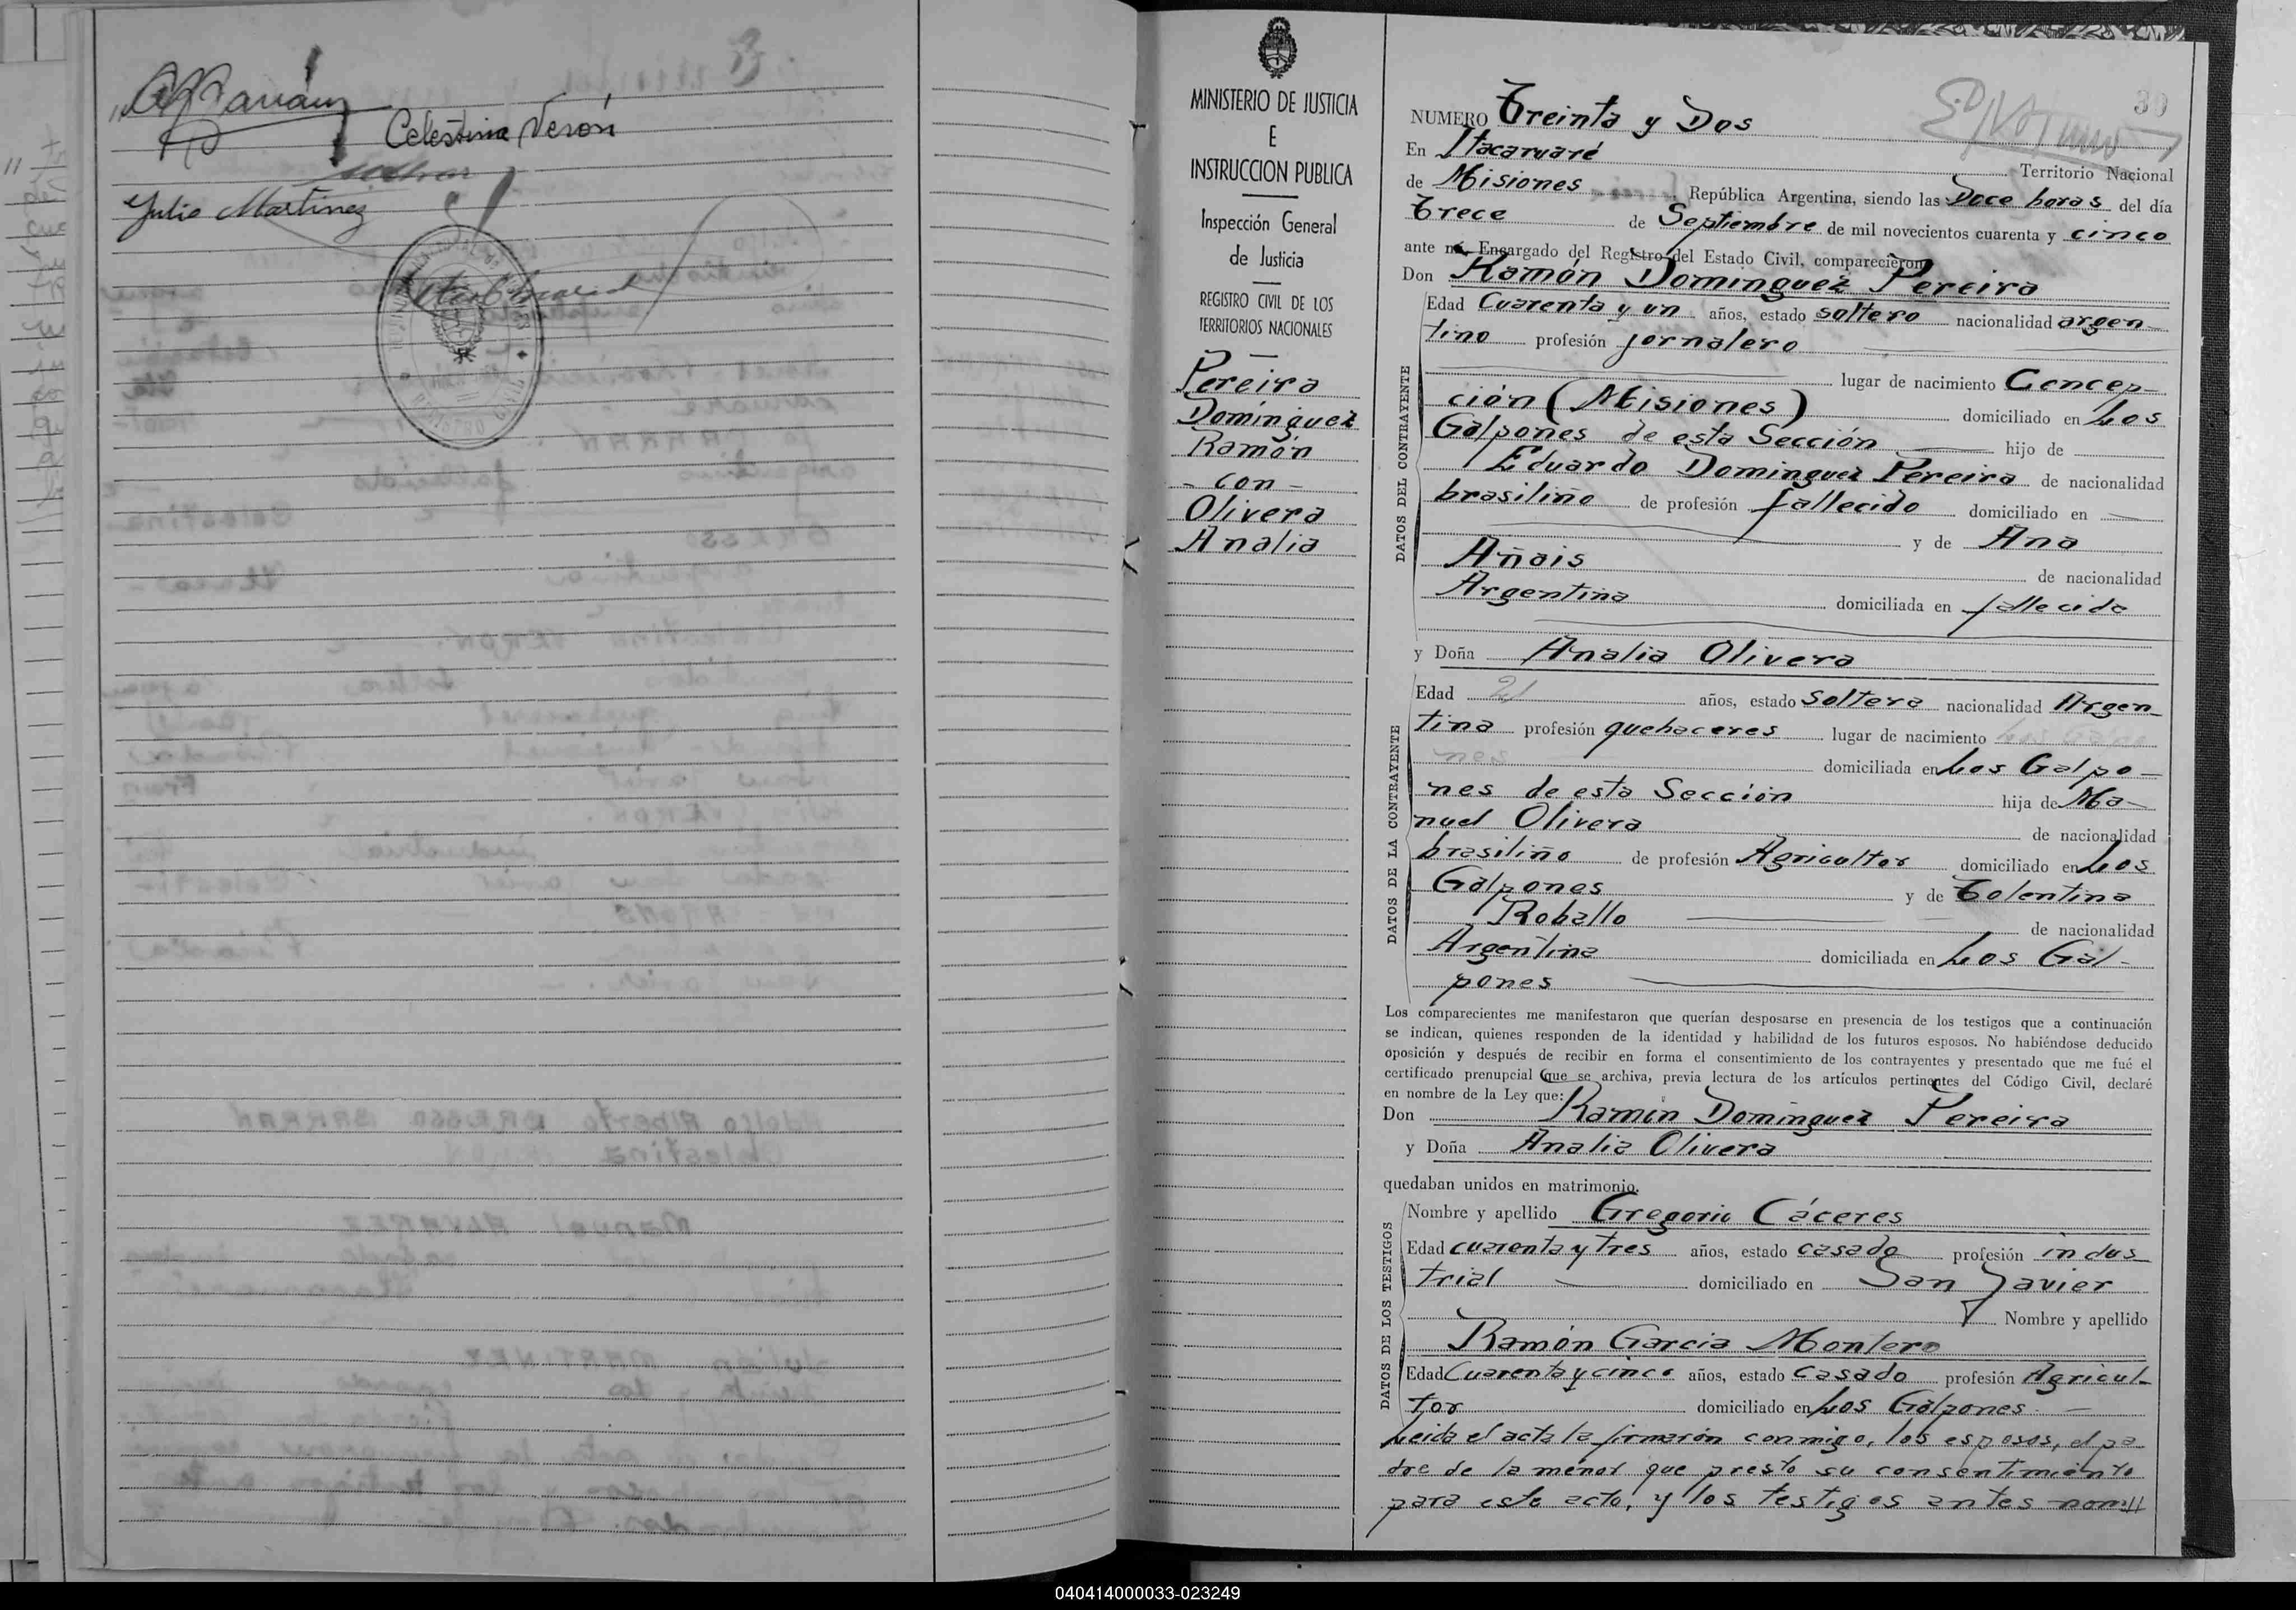 Celestina Verón
Julio Martinez
MINISTERIO DE JUSTICIA
E
INSTRUCCION PUBLICA
Inspección General
de Justicia
REGISTRO CIVIL DE LOS
TERRITORIOS NACIONALES
Pereira
Dominguez
Ramón
- con -
Olivera
Analia
30
NUMERO Treinta y Dos
En Itacaruaré Territorio Nacional
de Misiones República Argentina, siendo las Doce horas del día
Trece de Septiembre de mil novecientos cuarenta y cinco
ante mí Encargado del Registro del Estado Civil, comparecieron
Don Ramón Dominguez Pereira
DATOS DEL CONTRAYENTE
Edad Cuarenta y un años, estado soltero nacionalidad argen-
tino profesión jornalero
lugar de nacimiento Concep-
ción (Misiones) domiciliado en Los
Galpones de esta Sección hijo de
Eduardo Dominguez Pereira de nacionalidad
brasiliño de profesión fallecido domiciliado en
y de Ana
Añais de nacionalidad
Argentina domiciliada en fallecida
y Doña Analia Olivera
DATOS DE LA CONTRAYENTE
Edad 21 años, estado Soltera nacionalidad Argen-
tina profesión quehaceres lugar de nacimiento Los Galpo
nes domiciliada en Los Galpo-
nes de esta Sección hija de Ma-
nuel Olivera de nacionalidad
brasiliño de profesión Agricultor domiciliado en Los
Galpones y de Tolentina
Roballo de nacionalidad
Argentina domiciliada en Los Gal-
pones
Los comparecientes me manifestaron que querían desposarse en presencia de los testigos que a continuación
se indican, quienes responden de la identidad y habilidad de los futuros esposos. No habiéndose deducido
oposición y después de recibir en forma el consentimiento de los contrayentes y presentado que me fué el
certificado prenupcial que se archiva, previa lectura de los artículos pertinentes del Código Civil, declaré
en nombre de la Ley que:
Don Ramón Dominguez Pereira
y Doña Analia Olivera
quedaban unidos en matrimonio.
DATOS DE LOS TESTIGOS
Nombre y apellido Gregorio Cáceres
Edad cuarenta y tres años, estado casado profesión indus
trial domiciliado en San Javier
Nombre y apellido
Ramón Garcia Montero
Edad Cuarenta y cinco años, estado Casado profesión Agricul-
tor domiciliado en Los Galpones
Leida el acta la firmarón conmigo, los esposos, el pa-
dre de la menor que presto su consentimiento
para este acto, y los testigos antes nom//
040414000033-023249